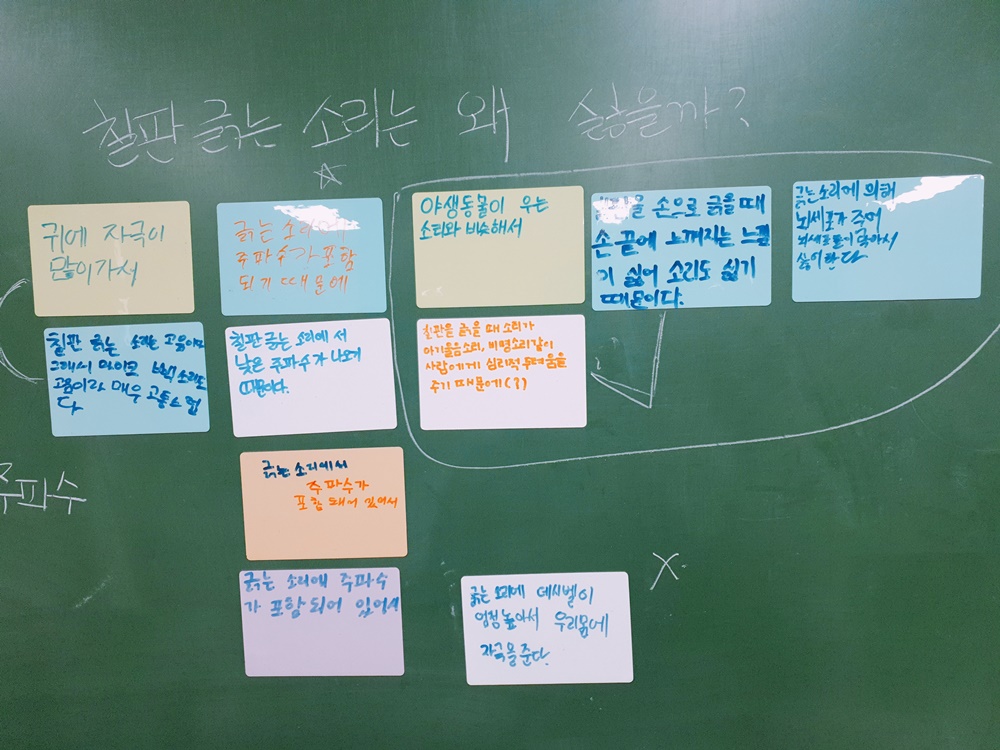 칠판 긁는 소리는 왜 싫을까?
귀에 자극이
많이가서
긁는 소리에
주파수가 포함
되기 때문에
야생동물이 우는
소리와 비슷해서
칠판을 손으로 긁을때
손 끝에 느껴지는 느낌
이 싫어 소리도 싫기
때문이다.
긁는소리에 의해
뇌세포가 죽어
싫어한다
칠판 긁는 소리는 고음이다
그래서 마이크 삑 소리도
고음이라 매우 고통스럽
다
칠판 긁는 소리에서
낮은 주파수가 나오기
때문이다.
칠판을 긁을 때 소리가
아기울음소리, 비명소리같이
사람에게 심리적 두려움을
주기 때문에(?)
긁는 소리에서
주파수가
포함 돼어 있어서
긁는 소리에 주파수
가 포함되어 있어서
긁는 소리에 데시벨이
엄청높아서 우리몸에
자극을 준다.
주파수